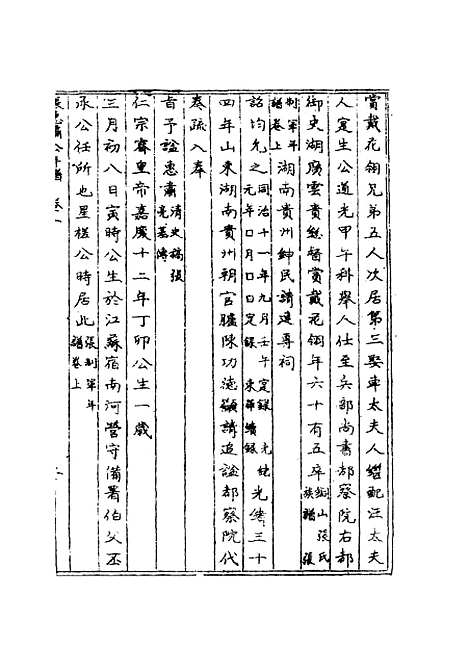 賞戴花翎兄弟五人次居第三娶車太夫人繼配汪太夫
人寔生公道光甲午科舉人仕至兵部尚書都察院右都
御史湖廣雲貴總督賞戴花翎年六十有五卒銅山張氏族譜張
制軍年譜卷上湖南貴州紳民請建專祠
詔均允之同治十一年九月壬午定錄光緒元年口月口口日定錄東華續錄光緒三十
四年山東湖南貴州朝官臚陳功德籲請追謚都察院代
奏疏入奉
旨予謚惠肅清史稿張亮基傳
仁宗睿皇帝嘉慶十二年丁卯公生一歲
三月初八日寅時公生於江蘇宿南河營守備署伯父丕
承公任所也星槎公時居此張制軍年譜卷上
張惠肅公年譜 卷一